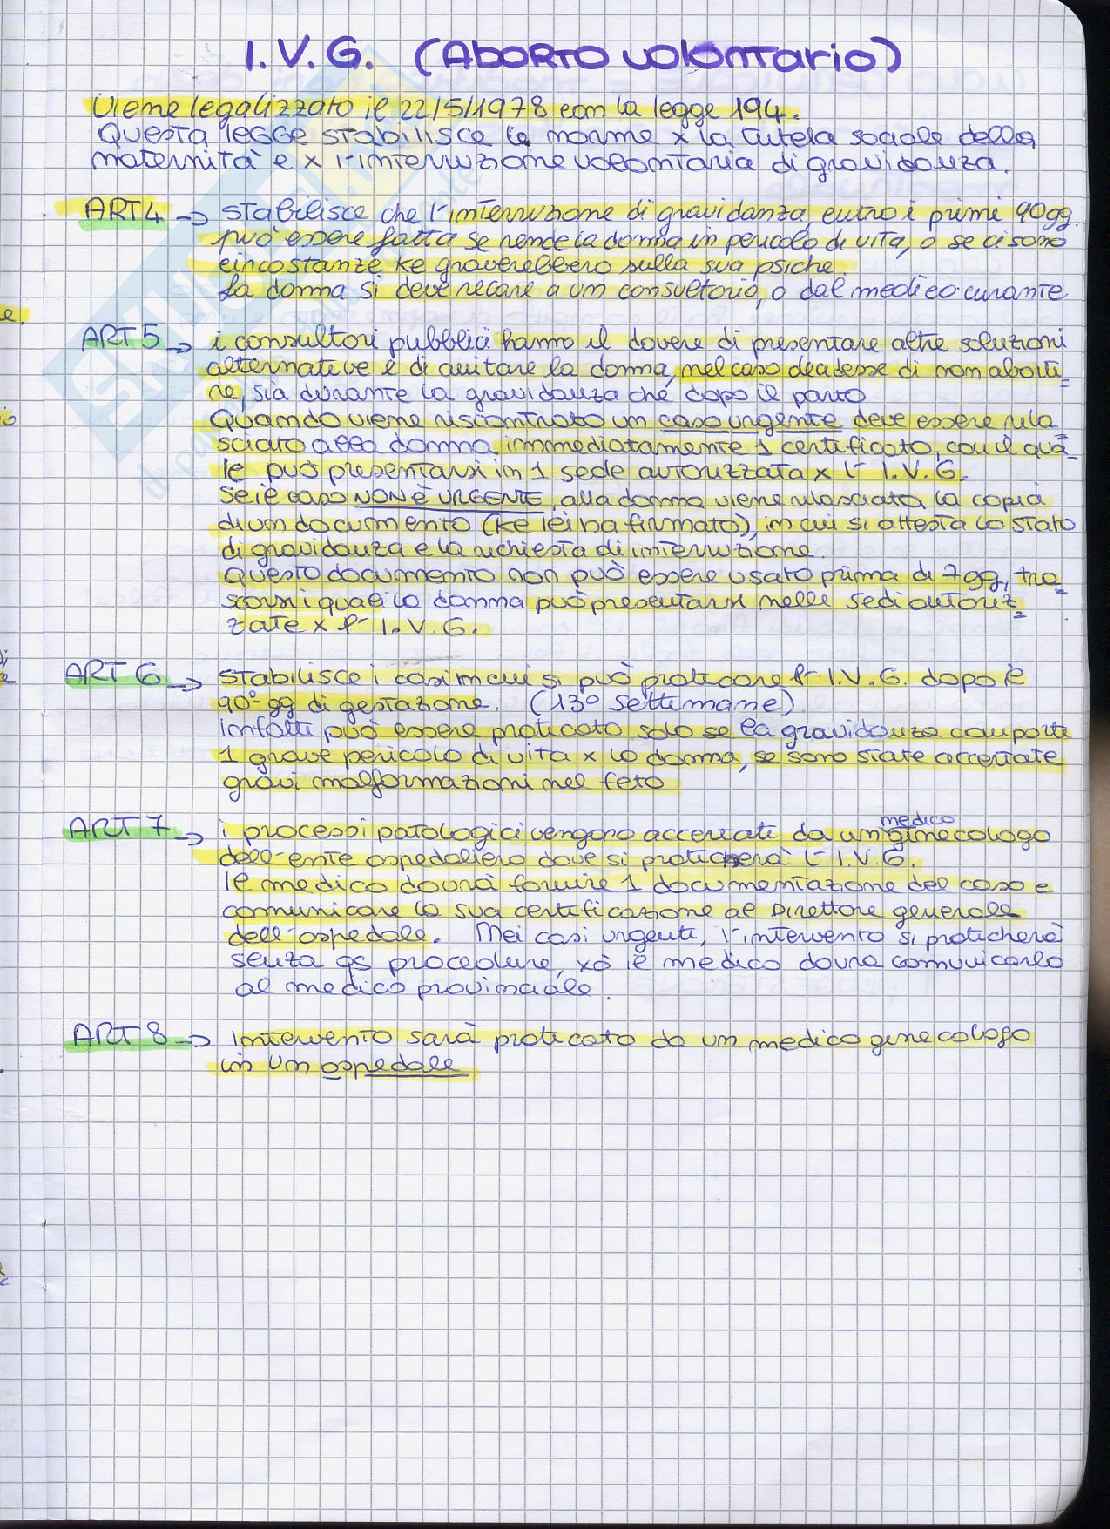 I.V.G. (Aborto volontario)
Viene legalizzato il 22/5/1978 con la legge 194.
Questa legge stabilisce le norme x la tutela sociale della
maternità e x l'interruzione volontaria di gravidanza.
ART 4 → stabilisce che l'interruzione di gravidanza, entro i primi 90gg.
può essere fatta se rende la donna in pericolo di vita, o se ci sono
circostanze ke graverebbero sulla sua psiche.
La donna si deve recare a un consultorio, o dal medico curante.
ART 5 → i consultori pubblici hanno il dovere di presentare altre soluzioni
alternative e di aiutare la donna, nel caso decidesse di non aborti-
re, sia durante la gravidanza che dopo il parto
Quando viene riscontrato un caso urgente deve essere rila=
sciato alla donna immediatamente 1 certificato, con il qua=
le può presentarsi in 1 sede autorizzata x l' I.V.G.
Se il caso NON È URGENTE, alla donna viene rilasciata la copia
di un documento (ke lei ha firmato), in cui si attesta lo stato
di gravidanza e la richiesta di interruzione.
Questo documento non può essere usato prima di 7gg, tra=
scorsi i quali la donna può presentarsi nelle sedi autoriz=
zate x l' I.V.G.
ART 6 → stabilisce i casi in cui si può praticare l' I.V.G. dopo il
90° gg di gestazione. (13° settimane)
Infatti può essere praticato solo se la gravidanza comporta
1 grave pericolo di vita x la donna, se sono state accertate
gravi malformazioni nel feto
ART 7 → i processi patologici vengono accertati da un medico ginecologo
dell'ente ospedaliero dove si praticherà l' I.V.G.
Il medico dovrà fornire 1 documentazione del caso e
comunicare la sua certificazione al Direttore generale
dell'ospedale. Nei casi urgenti, l'intervento si praticherà
senza qs procedure, xò il medico dovrà comunicarlo
al medico provinciale.
ART 8 → Intervento sarà praticato da un medico ginecologo
in un ospedale